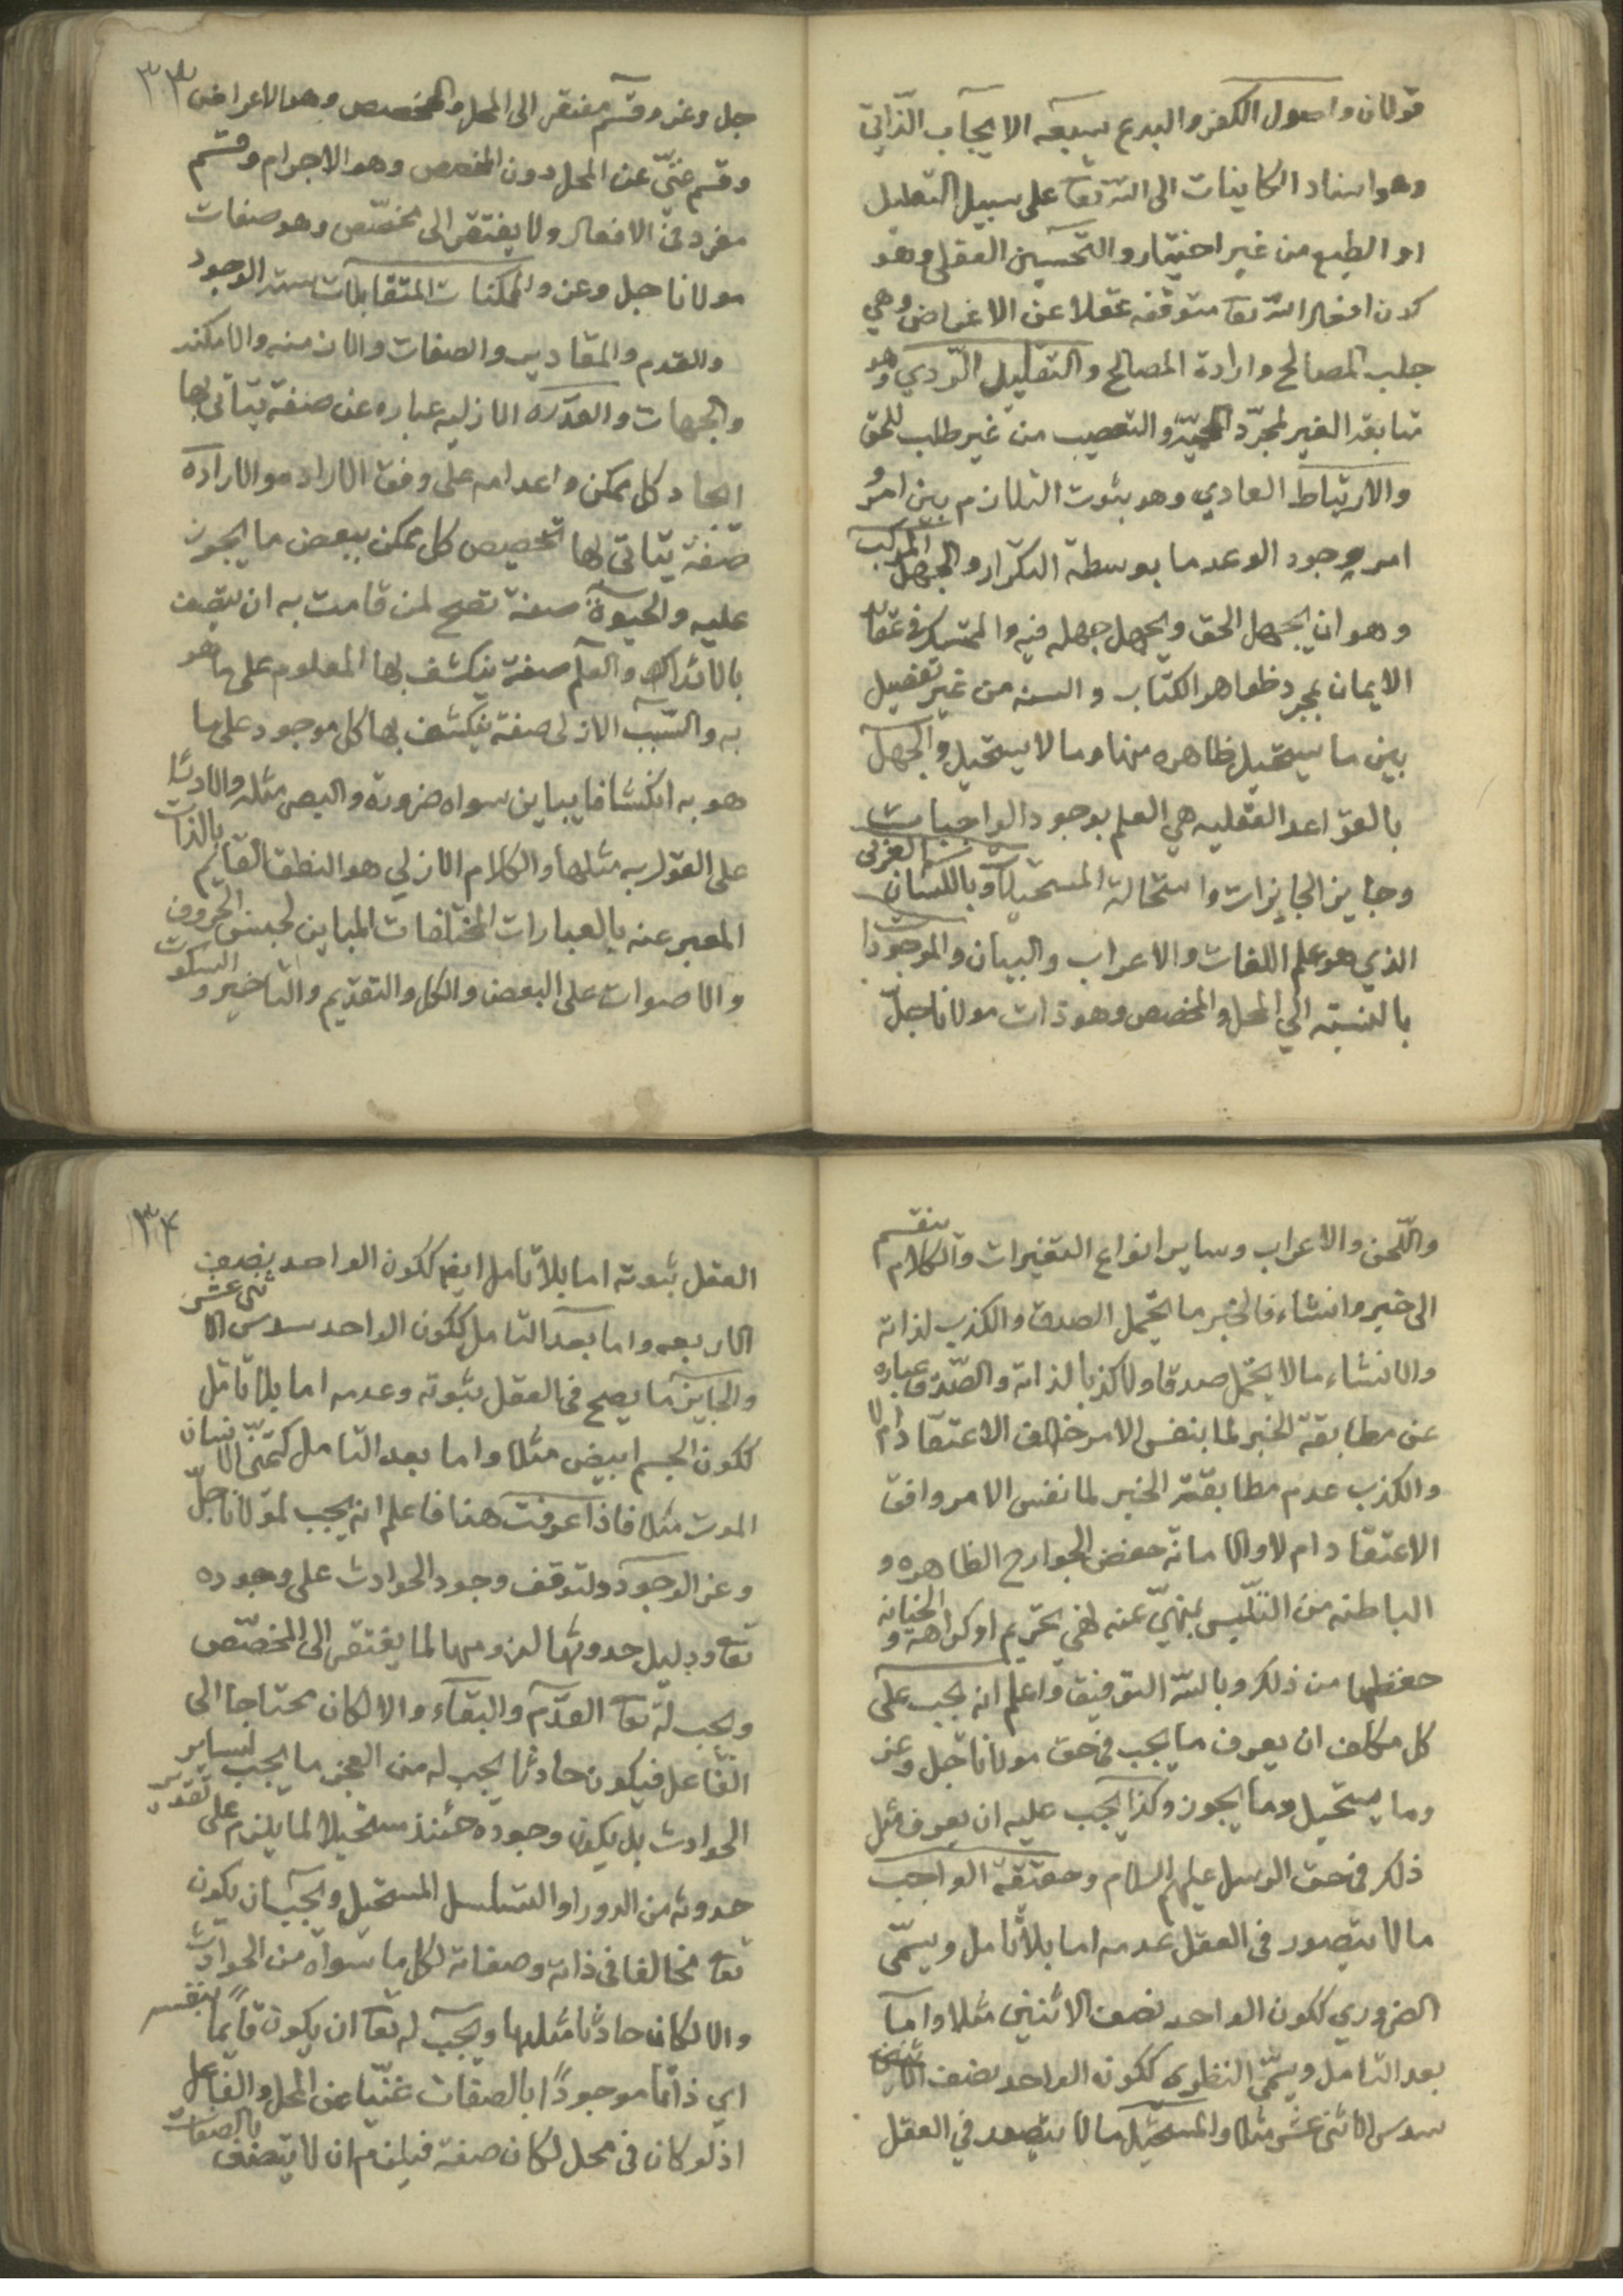 قولان واصول الكفر والبدع سبعه الايجاب الذاتي
وهو اسناد الكاينات الى الله تعا على سبيل التعليل
او الطبع من غير اختيار والتحسين العقلي وهو
كون افعال الله تعا متوقفه عقلا عن الاغراض وهي
جلب المصالح وارادة المصالح والتقليد الردي وهو
متابعة الغير لمجرد الحمية والتعصب من غير طلب للحق
والارتباط العادي وهو ثبوت التلازم بين امر و
امر وجود الوعدما بوسطة التكرار والجهل المركب
وهو ان يجهل الحق ويجهل جهله فيه والتمسك في عقايد
الايمان بمجرد ظواهر الكتاب والسنه من غير تفضيل
بين ما يستحيل ظاهره منها وما لا يستحيل والجهل
بالقواعد العقليه هي العلم بوجود الواجبات
وجايز الجايزات واستحالة المستحيلات وباللسان العربي
الذي هو علم اللغات والاعراب والبيان والموجودات
بالنسبة الي المحل والمخصص وهو ذات مولانا جلّ
٣٣
جل وعز وقسم مفتقر الى المحل والمخصص وهو الاعراض
وقسم غنيّ عن المحل دون المخصص وهو الاجرام وقسم
مفرد في الافعال ولا يفتقر الى مخصّص وهو صفات
مولانا جل وعز والممكنات المتقابلات ستة الوجود
والعدم والمقادير والصفات والازمنه والامكنه
والجهات والقدره الازليه عباره عن صفة يتاتى بها
ايجاد كل ممكن واعدامه على وفق الاراده والاراده
صفة يتاتى بها تخصيص كل ممكن ببعض ما يجوز
عليه والحيوة صفة تصح لمن قامت به ان يتصف
بالادراك والعلم صفة ينكشف بها المعلوم على ما هو
به والسبب الازلى صفة ينكشف بها كل موجود على ما
هو به انكشافا يباين سواه ضرورة والبصر مثله والادراك
على القول به مثلها والكلام الازلي هو النطق القايم بالذات
المعبر عنه بالعبارات المختلفات المباين لجنس الحروف
والاصوات على البعض والكل والتقديم والتاخير والسكوت
واللّحن والاعراب وساير انواع التغيرات والكلام ينقسم
الى خبر وانشاء فالخبر ما يحتمل الصدق والكذب لذاته
والانشاء مالا يحتمل صدقا ولا كذبا لذاته والصّدق عباره
عن مطابقة الخبر لما بنفس الامر خالف الاعتقاد ام لا
والكذب عدم مطابقة الخبر لما نفس الامر وافق
الاعتقاد ام لا والامانة حفض الجوارح الظاهره و
الباطنه من التلبس بمنهيّ عنه لهي تحريم او كراهة والخيانه
حفظها من ذلك وبالله التوفيق واعلم انه يجب على
كل مكلف ان يعرف ما يجب في حق مولانا جل وعز
وما يستحيل وما يجوز وكذا يجب عليه ان يعرف مثل
ذلك في حق الرسل عليهم السلام وحقيقة الواجب
مالا يتصور في العقل عدمه اما بلا تامل ويسمّى
الضروري ككون الواحد نصف الاثنين مثلا واما
بعد التامل ويسمّى النظرى ككونه الواحد نصف
سدس الاثنى عشر مثلا والمستحيل مالا يتصور في العقل
٣٤
العقل ثبوته اما بلا تامل ايضا ككون الواحد نصف
الاربعه واما بعد التامل ككون الواحد سدس الاثنى عشر
والجايز ما يصح في العقل ثبوته وعدمه اما بلا تامل
ككون الجسم ابيض مثلا واما بعد التامل كتمنّى الانسان
الموت مثلا فاذا عرفت هذا فاعلم انه يجب لمولانا جلّ
وعز الوجود ولتوقف وجود الحوادث على وجوده
تعا ودليل حدوثها لزومها لما يفتقر الى المخصّص
ويجب له تعا القدم والبقاء والا لكان محتاجا الى
الفاعل فيكون حادثا يجب له من العجز ما يجب لساير
الحوادث بل يكون وجوده حئنذ مستحيلا لما يلزم على تقدير
حدوثه من الدور او التسلسل المستحيل ويجب ان يكون
تعا مخالفا في ذاته وصفاته لكل ما سواه من الحوادث
والا لكان حادثا مثلها ويجب له تعا ان يكون قايما بنفسه
اي ذاتا موجودا بالصفات غنيّا عن المحل والفاعل
اذ لو كان في محل لكان صفة فيلزم ان لا يتصف بالصفات